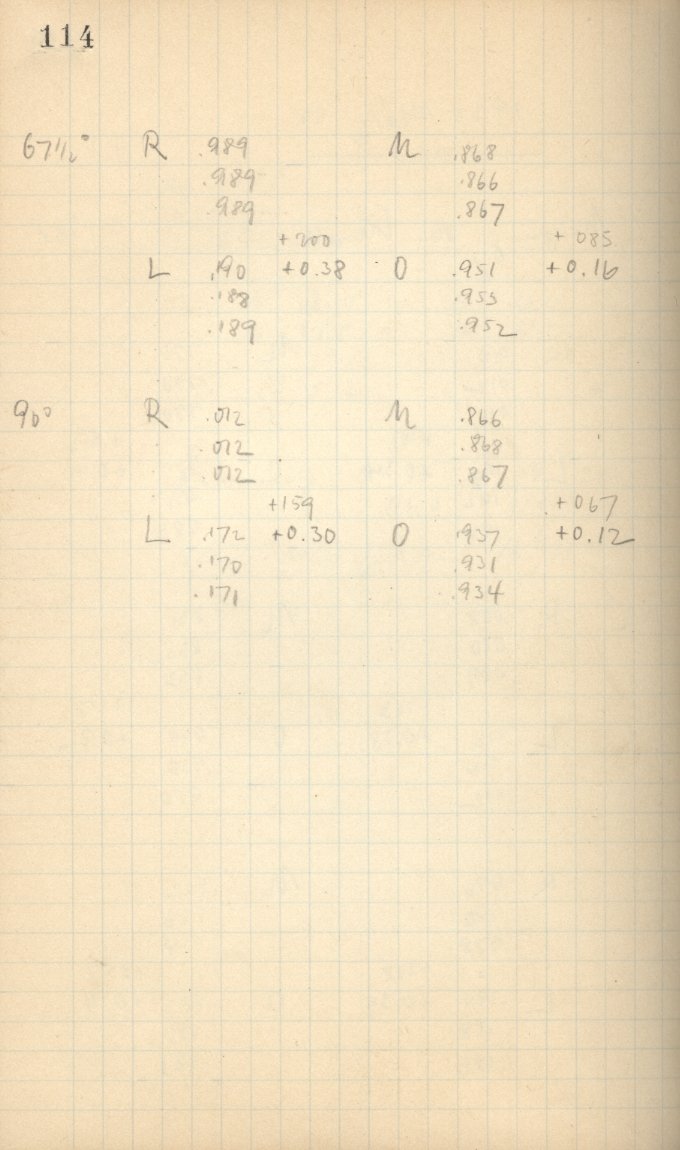 114
67 1/2° R .989 M .868
.989 .866
.989 .867
+200 +085
L .190 +0.38 O .951 +0.16
.188 .955
.189 .952
90° R .012 M .866
.012 .868
.012 .867
+159 +067
L .172 +0.30 O .937 +0.12
.170 .931
.171 .934